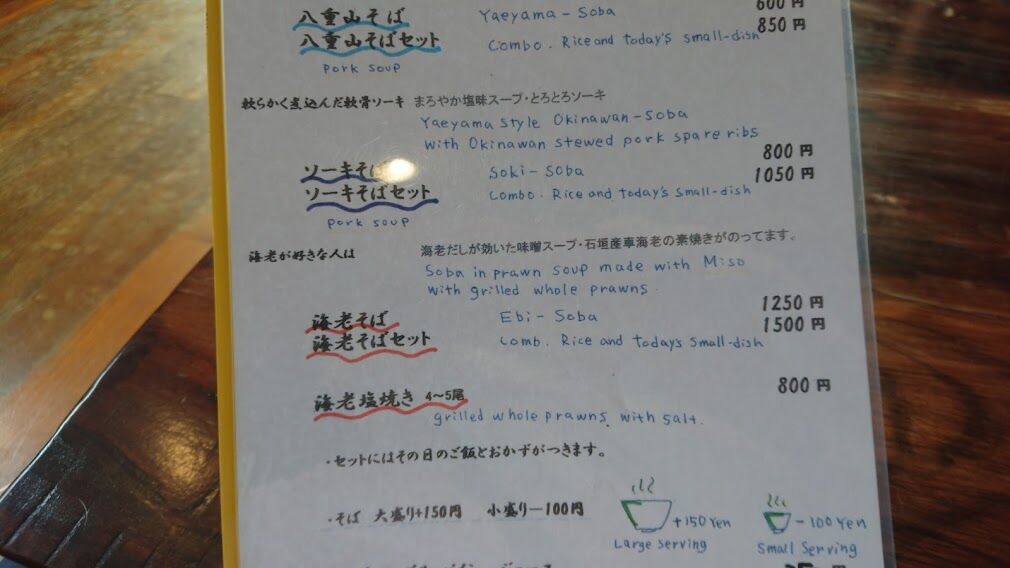 八重山そば Yaeyama - Soba 600円
八重山そばセット Combo. Rice and today's small-dish 850円
pork soup
軟らかく煮込んだ軟骨ソーキ まろやか塩味スープ・とろとろソーキ
Yaeyama style Okinawan-Soba
with Okinawan stewed pork spare ribs
ソーキそ Soki - Soba 800円
ソーキそばセット Combo. Rice and today's small-dish 1050円
pork soup
海老が好きな人は 海老だしが効いた味噌スープ・石垣産車海老の素焼きがのってます。
Soba in prawn soup made with Miso
with grilled whole prawns.
海老そば Ebi - Soba 1250円
海老そばセット Comb. Rice and todays small-dish 1500円
海老塩焼き 4〜5尾 800円
grilled whole prawns. with salt.
・セットにはその日のご飯とおかずがつきます。
・そば 大盛り+150円 小盛り−100円 +150 Yen -100 Yen
Large serving Small Serving